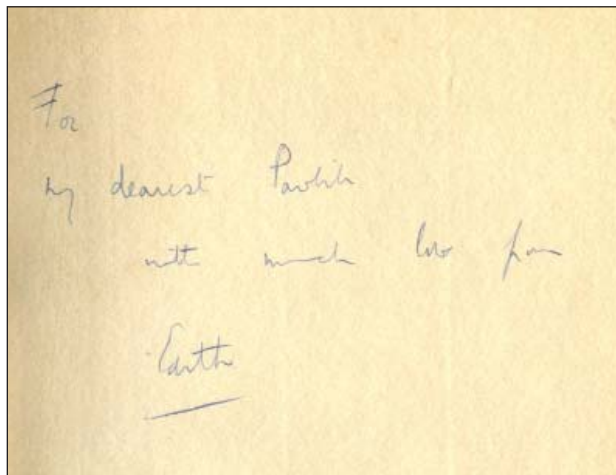 For
my dearest Pavlik
with much love from
Edith